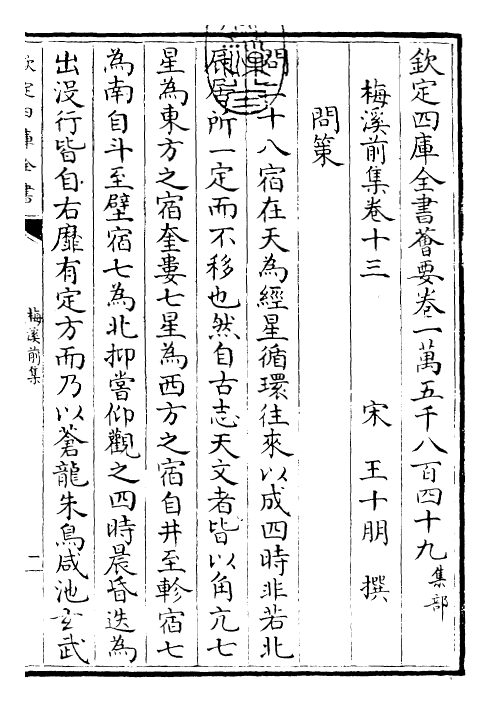 欽定四庫全書薈要卷一萬五千八百四十九集部
梅溪前集卷十三
宋王十朋撰
問策
問二十八宿在天為經星循環往來以成四時非若北
辰居所一定而不移也然自古志天文者皆以角亢七
星為東方之宿奎婁七星為西方之宿自井至軫宿七
為南自斗至壁宿七為北抑嘗仰觀之四時晨昏迭為
出沒行皆自右靡有定方而乃以蒼龍朱鳥咸池玄武
欽定四庫全書
梅溪前集